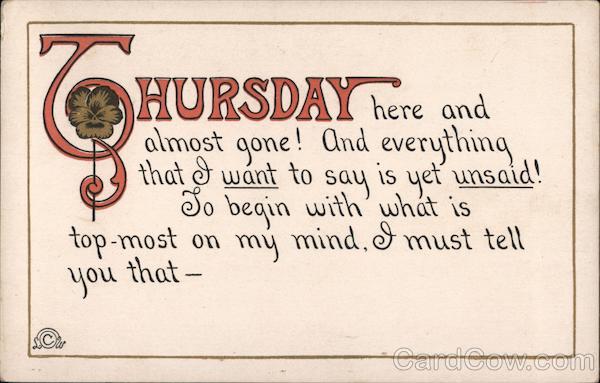 THURSDAY here and
almost gone! And everything
that I want to say is yet unsaid!
To begin with what is
top-most on my mind, I must tell
you that—
CardCow.com